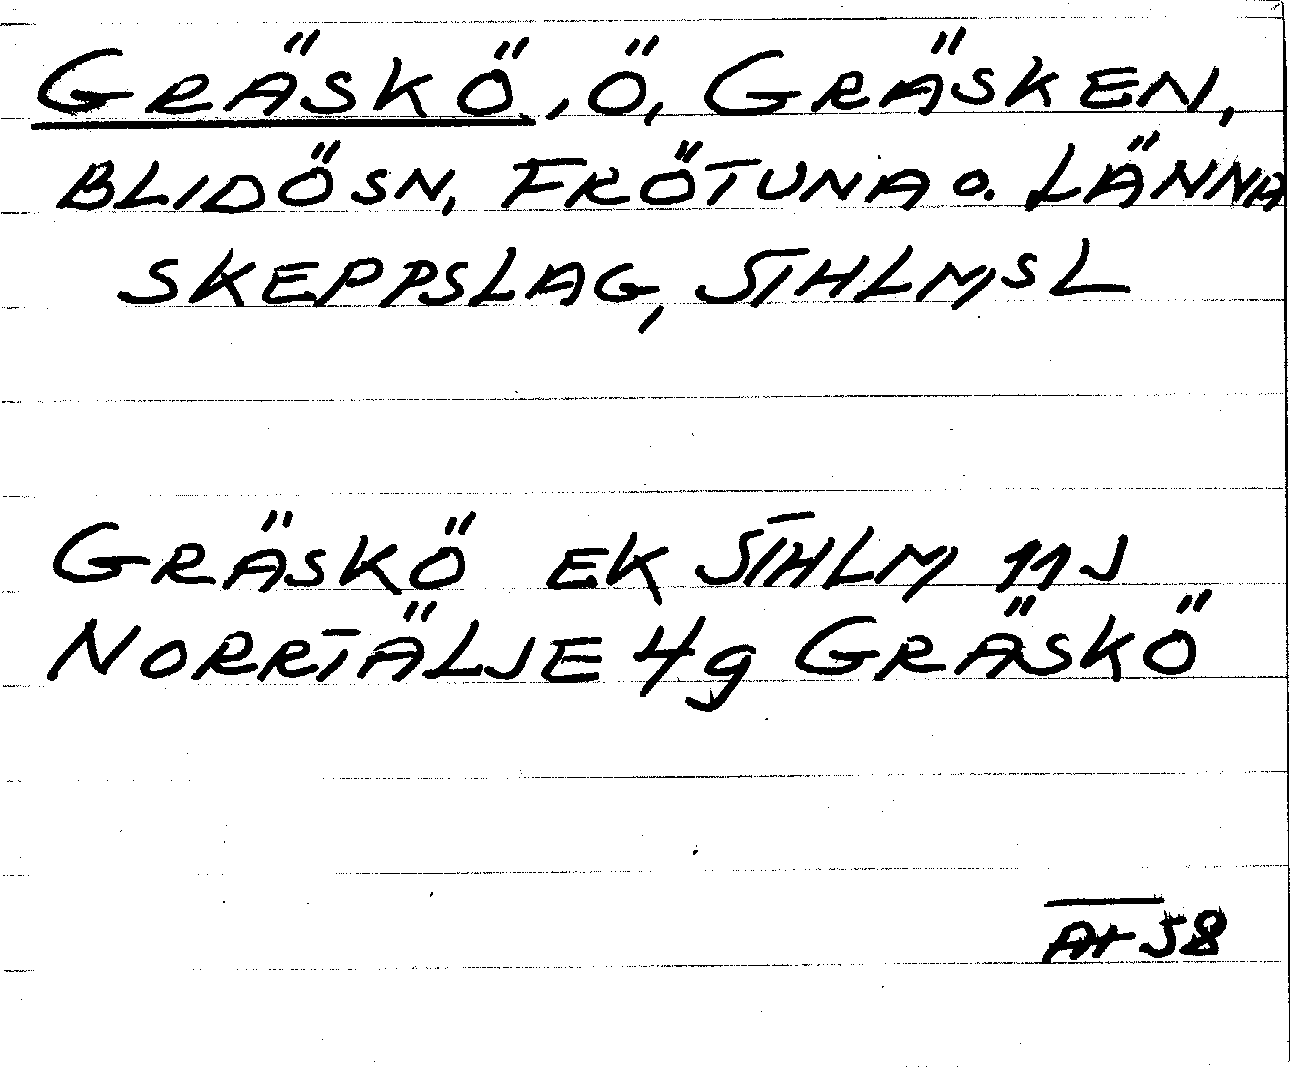 GRÄSKÖ, Ö, GRÄSKEN,
BLIDÖ SN, FRÖTUNA o. LÄNNA
SKEPPSLAG, STHLMS L
GRÄSKÖ EK STHLM 11 J
NORRTÄLJE 4g GRÄSKÖ
58